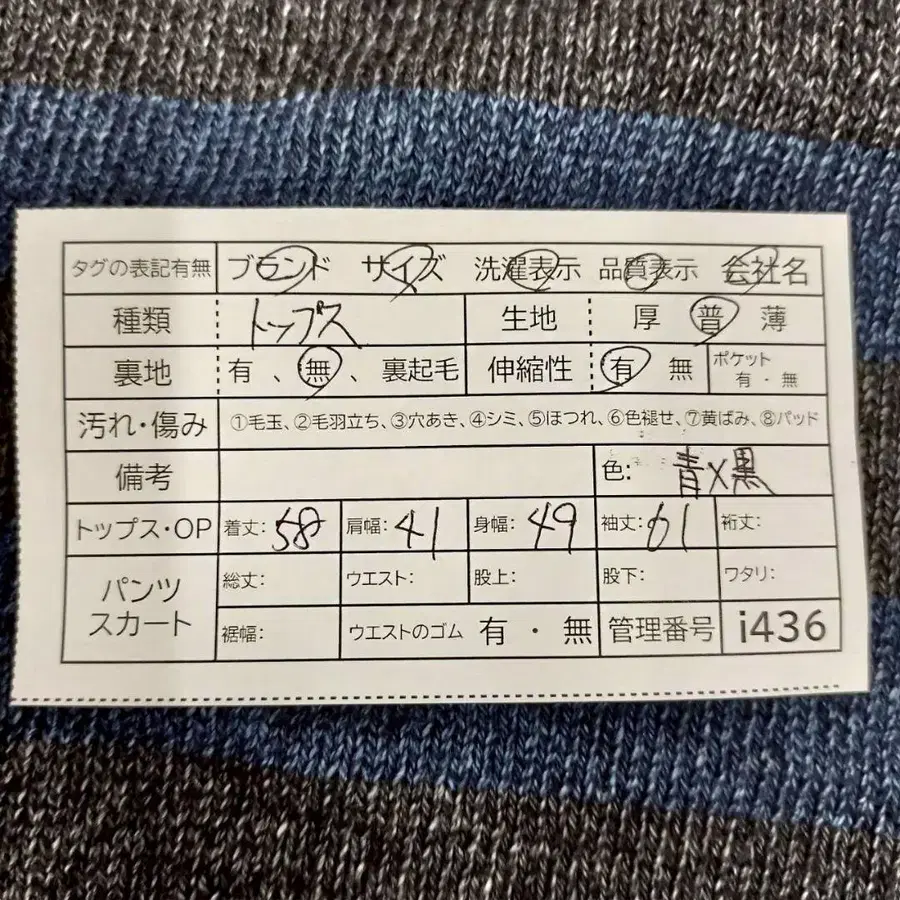 タグの表記有無 ブランド サイズ 洗濯表示 品質表示 会社名
種類 トップス 生地 厚 普 薄
裏地 有 、 無 、 裏起毛 伸縮性 有 無 ポケット 有 ・ 無
汚れ・傷み ①毛玉、②毛羽立ち、③穴あき、④シミ、⑤ほつれ、⑥色褪せ、⑦黄ばみ、⑧パッド
備考 色: 青×黒
トップス・OP 着丈: 58 肩幅: 41 身幅: 49 袖丈: 61 裄丈:
パンツ スカート 総丈: ウエスト: 股上: 股下: ワタリ:
裾幅: ウエストのゴム 有 ・ 無 管理番号 i436